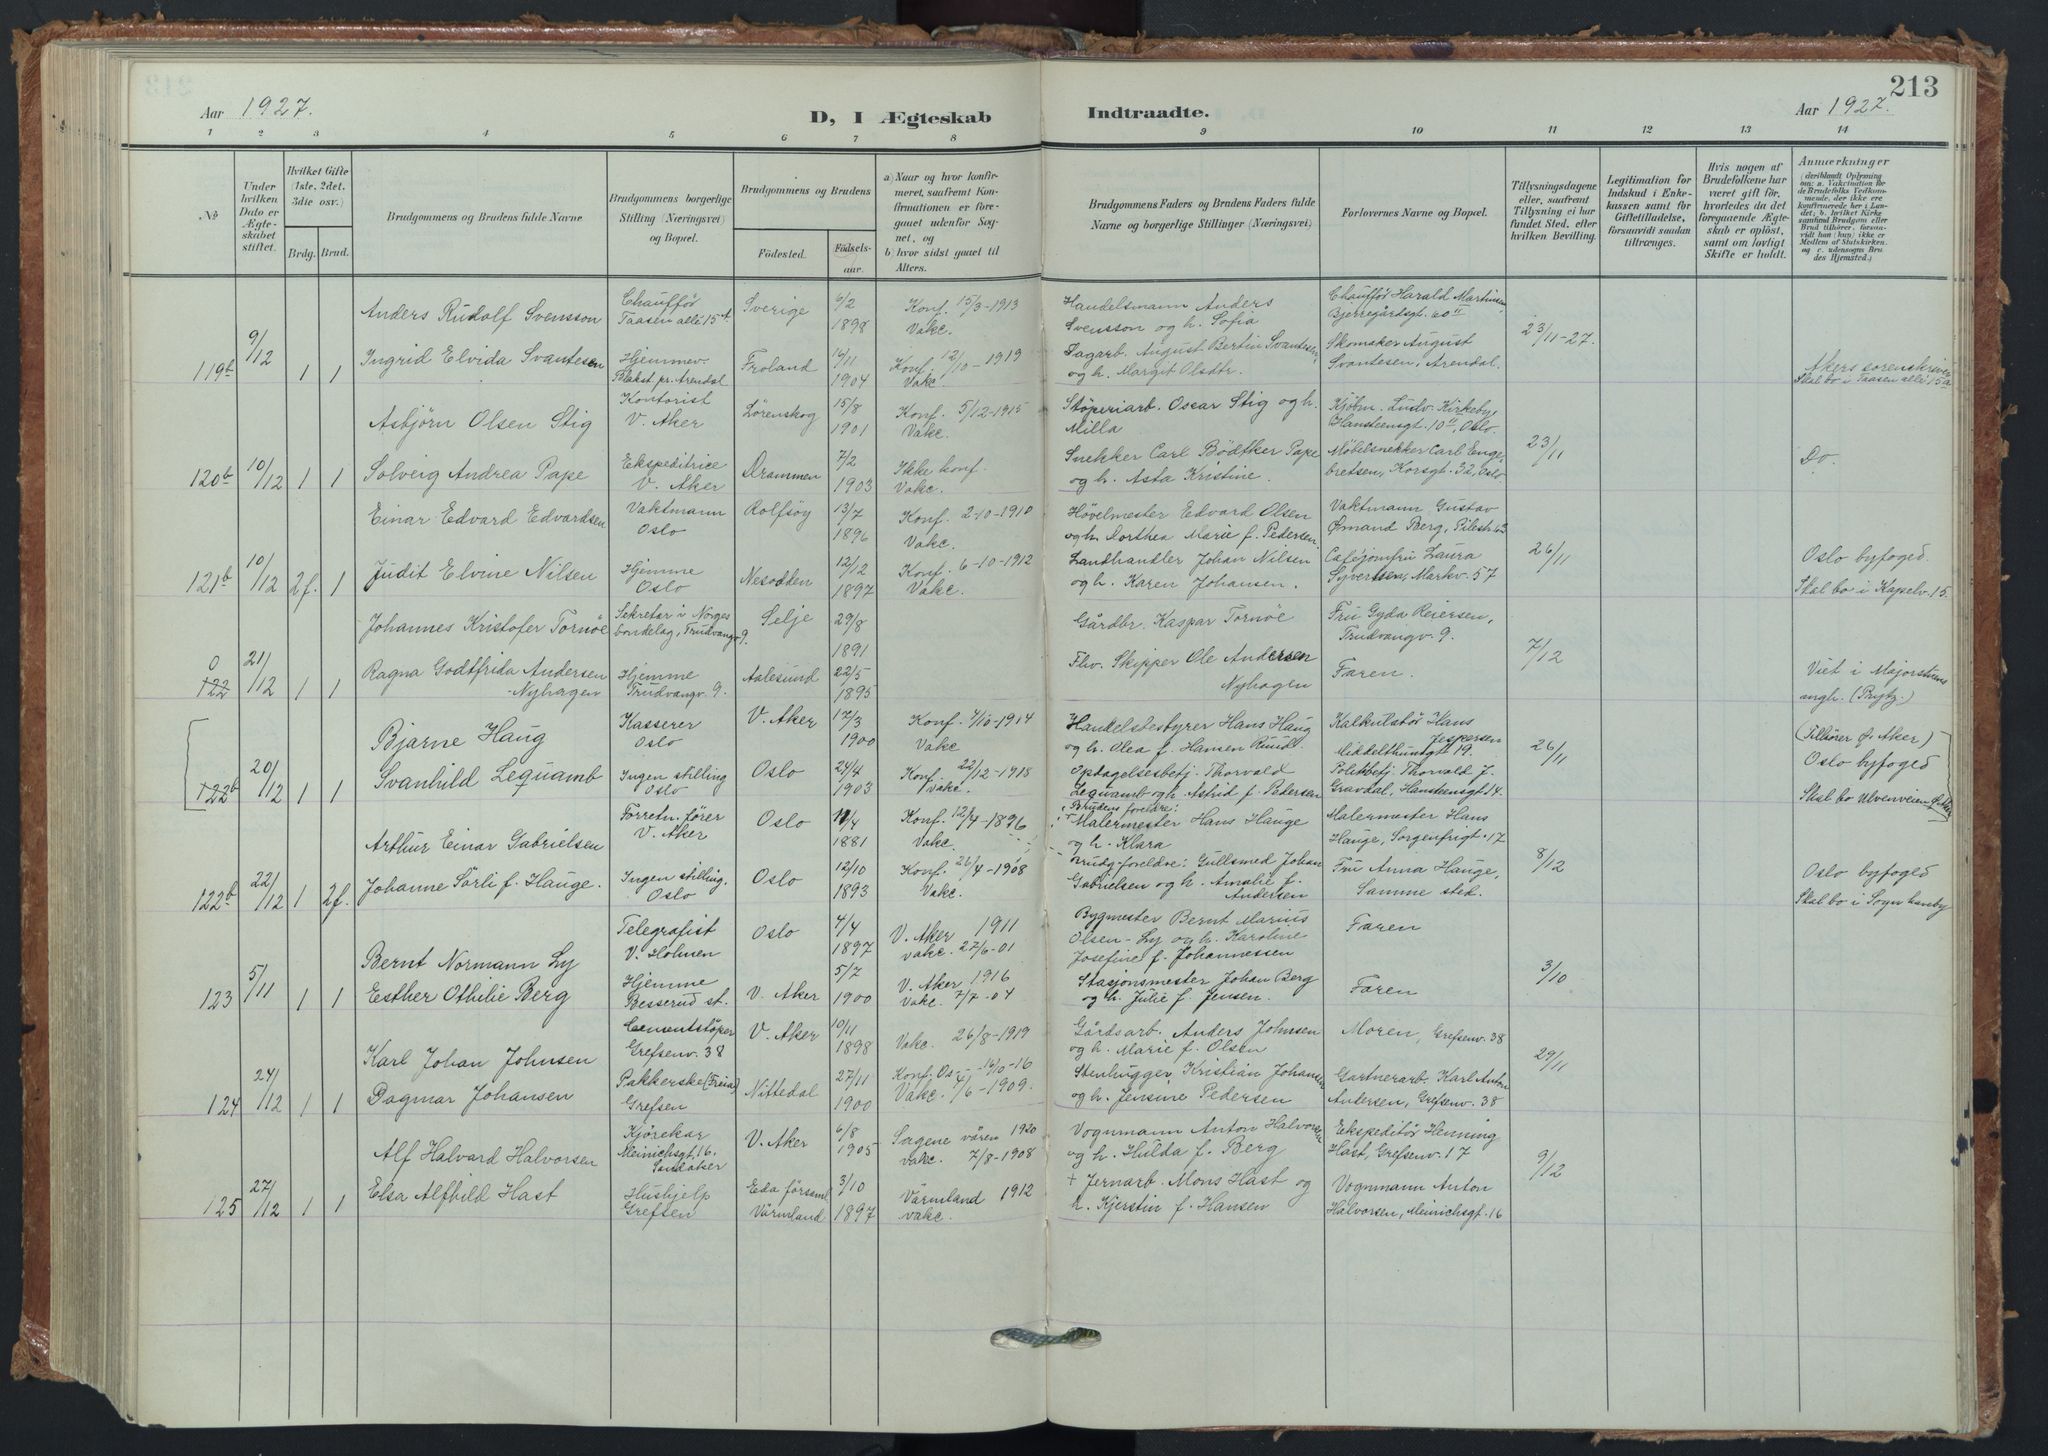 213
Aar 1927.
D, I Ægteskab
Indtraadte.
Aar 1927.
1 2 3 4 5 6 7 8 9 10 11 12 13 14
№
Under hvilken Dato er Ægteskabet stiftet.
Hvilket Gifte (1ste, 2det. 3die osv.)
Brdg. Brud.
Brudgommens og Brudens fulde Navne
Brudgommens borgerlige Stilling (Næringsvei) og Bopæl.
Brudgommens og Brudens
Födested.
Födselsaar.
a) Naar og hvor konfirmeret, saafremt Konfirmationen er foregaaet udenfor Sognet, og
b) hvor sidst gaaet til Alters.
Brudgommens Faders og Brudens Faders fulde Navne og borgerlige Stillinger (Næringsvei)
Forlovernes Navne og Bopæl.
Tillysningsdagene eller, saafremt Tillysning ei har fundet Sted, efter hvilken Bevilling.
Legitimation for Indskud i Enkekassen samt for Giftetilladelse, forsaavidt saadan tiltrænges.
Hvis nogen af Brudefolkene har været gift för, hvorledes da det foregaaende Ægteskab er oplöst, samt om lovligt Skifte er holdt.
Anmærkninger (deriblandt Oplysning om: a. Vakcination for de Brudefolks Vedkommende, der ikke ere konfirmerede her i Landet; b. hvilket Kirkesamfund Brudgom eller Brud tilhörer, forsaavidt han (hun) ikke er Medlem af Statskirken, og c. udensogns Brudes Hjemsted.)
Anders Rudolf Svensson Chauffør Taasen allé 15 A. Sverige 6/2 1898 Konf. 15/3-1913 Vakc. Handelsmann Anders Svensson og h. Sofia Chauffør Harald Martinsen, Bjerregårdsgt. 60 II
119b 9/12 1 1 Ingrid Elvida Svantesen Hjemmev. Blakst. pr. Arendal Froland 16/11 1904 Konf. 12/10-1919 Vakc. Dagarb. August Bertin Svantesen, og h. Margit Olsdtr. Skomaker August Svantesen, Arendal. 23/11-27. Akers sorenskriver Skal bo i Taasen allé 15a
Asbjörn Olsen Stig Kontorist V. Aker Lörenskog 15/8 1901 Konf. 5/12-1915 Vakc. Stöperiarb. Oscar Stig og h. Milla Kjöbm. Ludv. Kirkeby, Hansteensgt. 10 II, Oslo.
120b 10/12 1 1 Solveig Andrea Pape Ekspeditrice V. Aker Drammen 7/2 1903 Ikke konf. Vakc. Snekker Carl Bödtker Pape og h. Asta Kristine. Möbelsnekker Carl Engebretsen, Korsgt. 32, Oslo. 23/11 Do.
Einar Edvard Edvardsen Vaktmann Oslo Rolfsöy 13/7 1896 Konf. 2-10-1910 Vakc. Hövelmester Edvard Olsen og h. Dorthea Marie f. Pedersen. Vaktmann Gustav Ømand Berg, Pilestr. 63
121b 10/12 2f. 1 Judit Elvine Nilsen Hjemme Oslo Nesodden 12/12 1897 Konf. 6-10-1912 Vakc. Landhandler Johan Nilsen og h. Karen Johansen. Caféjomfru Laura Syvertsen, Markv. 57 26/11 Oslo byfoged Skal bo i Kapelv. 15.
Johannes Kristofer Tornöe Sekretær i Norges bondelag, Trudvangv. 9. Selje 29/8 1891 Gårdbr. Kaspar Tornöe Fru Gyda Reiersen, Trudvangv. 9.
0 122 21/12 1 1 Ragna Godtfrida Andersen -Nyhagen Hjemme Trudvangv. 9. Aalesund 22/5 1895 Fhv. Skipper Ole Andersen Nyhagen Faren. 7/12 Viet i Majorstuens mgh. (Prytz.)
Bjarne Haug Kasserer Oslo V. Aker 17/3 1900 Konf. 4/10-1914 Vakc Handelsbestyrer Hans Haug og h. Olea f. Hansen Ruud. Kalkulatör Hans Jespersen Middelthunsgt 19. (Tilhörer Ø. Aker)
122b 20/12 1 1 Svanhild Lequamb Ingen stilling Oslo Oslo 24/4 1903 Konf. 22/12-1918 Vakc. Opdagelsesbetj. Thorvald Lequamb og h. Astrid f. Pedersen Politibetj. Thorvald J. Gravdal, Hansteensgt 14. 26/11 Oslo byfoged Skal bo Ulvenveien Ø. Aker
Arthur Einar Gabrielsen Forretn. förer V. Aker Oslo 11/4 1881 Konf. 12/4-1896 Vakc. Brudens foreldre: Malermester Hans Hauge og h. Klara Malermester Hans Hauge, Sorgenfrigt. 17
122b 22/12 1 2f. Johanne Sörli f. Hauge. Ingen stilling. Oslo Oslo 12/10 1893 Konf. 26/4-1908 Vakc. Brudg. foreldre: Gullsmed Johan Gabrielsen og h. Amalie f. Andersen Fru Anna Hauge, Samme sted. 8/12 Oslo byfoged Skal bo i Sogn haveby
Bernt Normann Ly Telegrafist V. Holmen Oslo 4/4 1897 V. Aker 1911 vakc. 27/6-01 Bygmester Bernt Marius Olsen-Ly og h. Karoline Josefine f. Johannessen Faren
123 5/11 1 1 Esther Othilie Berg Hjemme Besserud st. V. Aker 5/7 1900 V. Aker 1916 Vakc. 7/7-04 Stasjonsmester Johan Berg og h. Julie f. Jensen. Faren 3/10
Karl Johan Johnsen Cementstöper Grefsenv. 38 V. Aker 10/11 1898 Vakc. 26/8-1919 Gårdsarb. Anders Johnsen og h. Marie f. Olsen Moren, Grefsenv. 38
124 24/12 1 1 Dagmar Johansen Pakkerske (Freia) Grefsen Nittedal 27/11 1900 Konf. Os--14/10-16 Vakc. 4/6-1909. Stenhugger Kristian Johansen og h. Jensine Pedersen Gartnerarb. Karl Anton Andersen, Grefsenv. 38 29/11
Alf Halvard Halvorsen Kjörekar Meinichsgt. 16. Sandaker V. Aker 6/8 1905 Sagene våren 1920 vakc. 7/8-1908 Vognmann Anton Halvorsen og h. Hulda f. Berg Ekspeditör Henning Hast, Grefsenv. 17
125 27/12 1 1 Elsa Alfhild Hast Hushjelp Grefsen Eda församl Värmland 3/10 1897 Värmland 1912 vakc. + Jernarb. Mons Hast og h. Kjerstin f. Hansen Vognmann Anton Halvorsen, Meinichsgt. 16 9/12